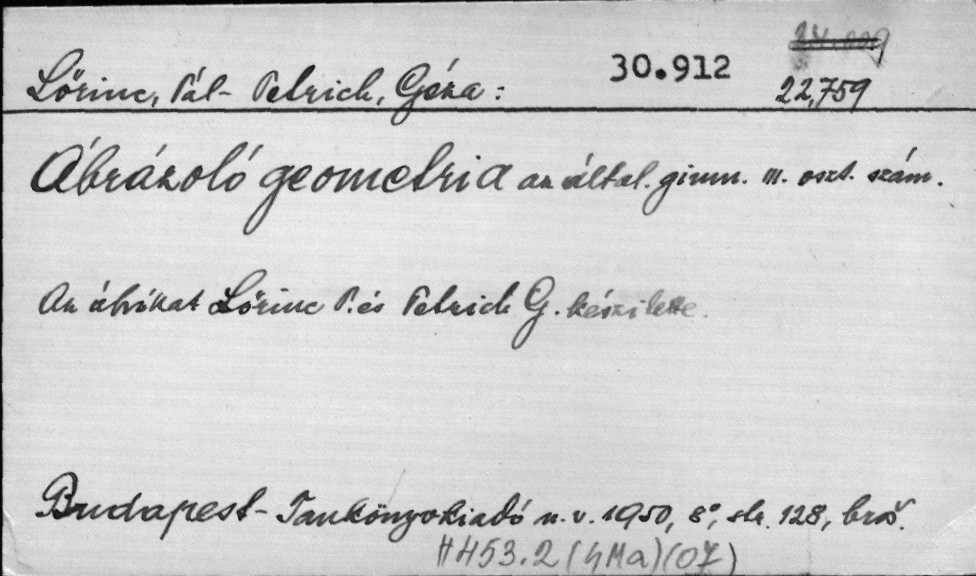 30.912
22,759
Lőrinc, Pál - Petrich, Géza:
Ábrázoló geometria az által. gimn. III. oszt. szám.
Az ábrákat Lőrinc P. és Petrich G. készitette.
Budapest - Tankönyvkiadó n. v. 1950, 8°, str. 128, brož.
H 453.2 (4Ma)(07)